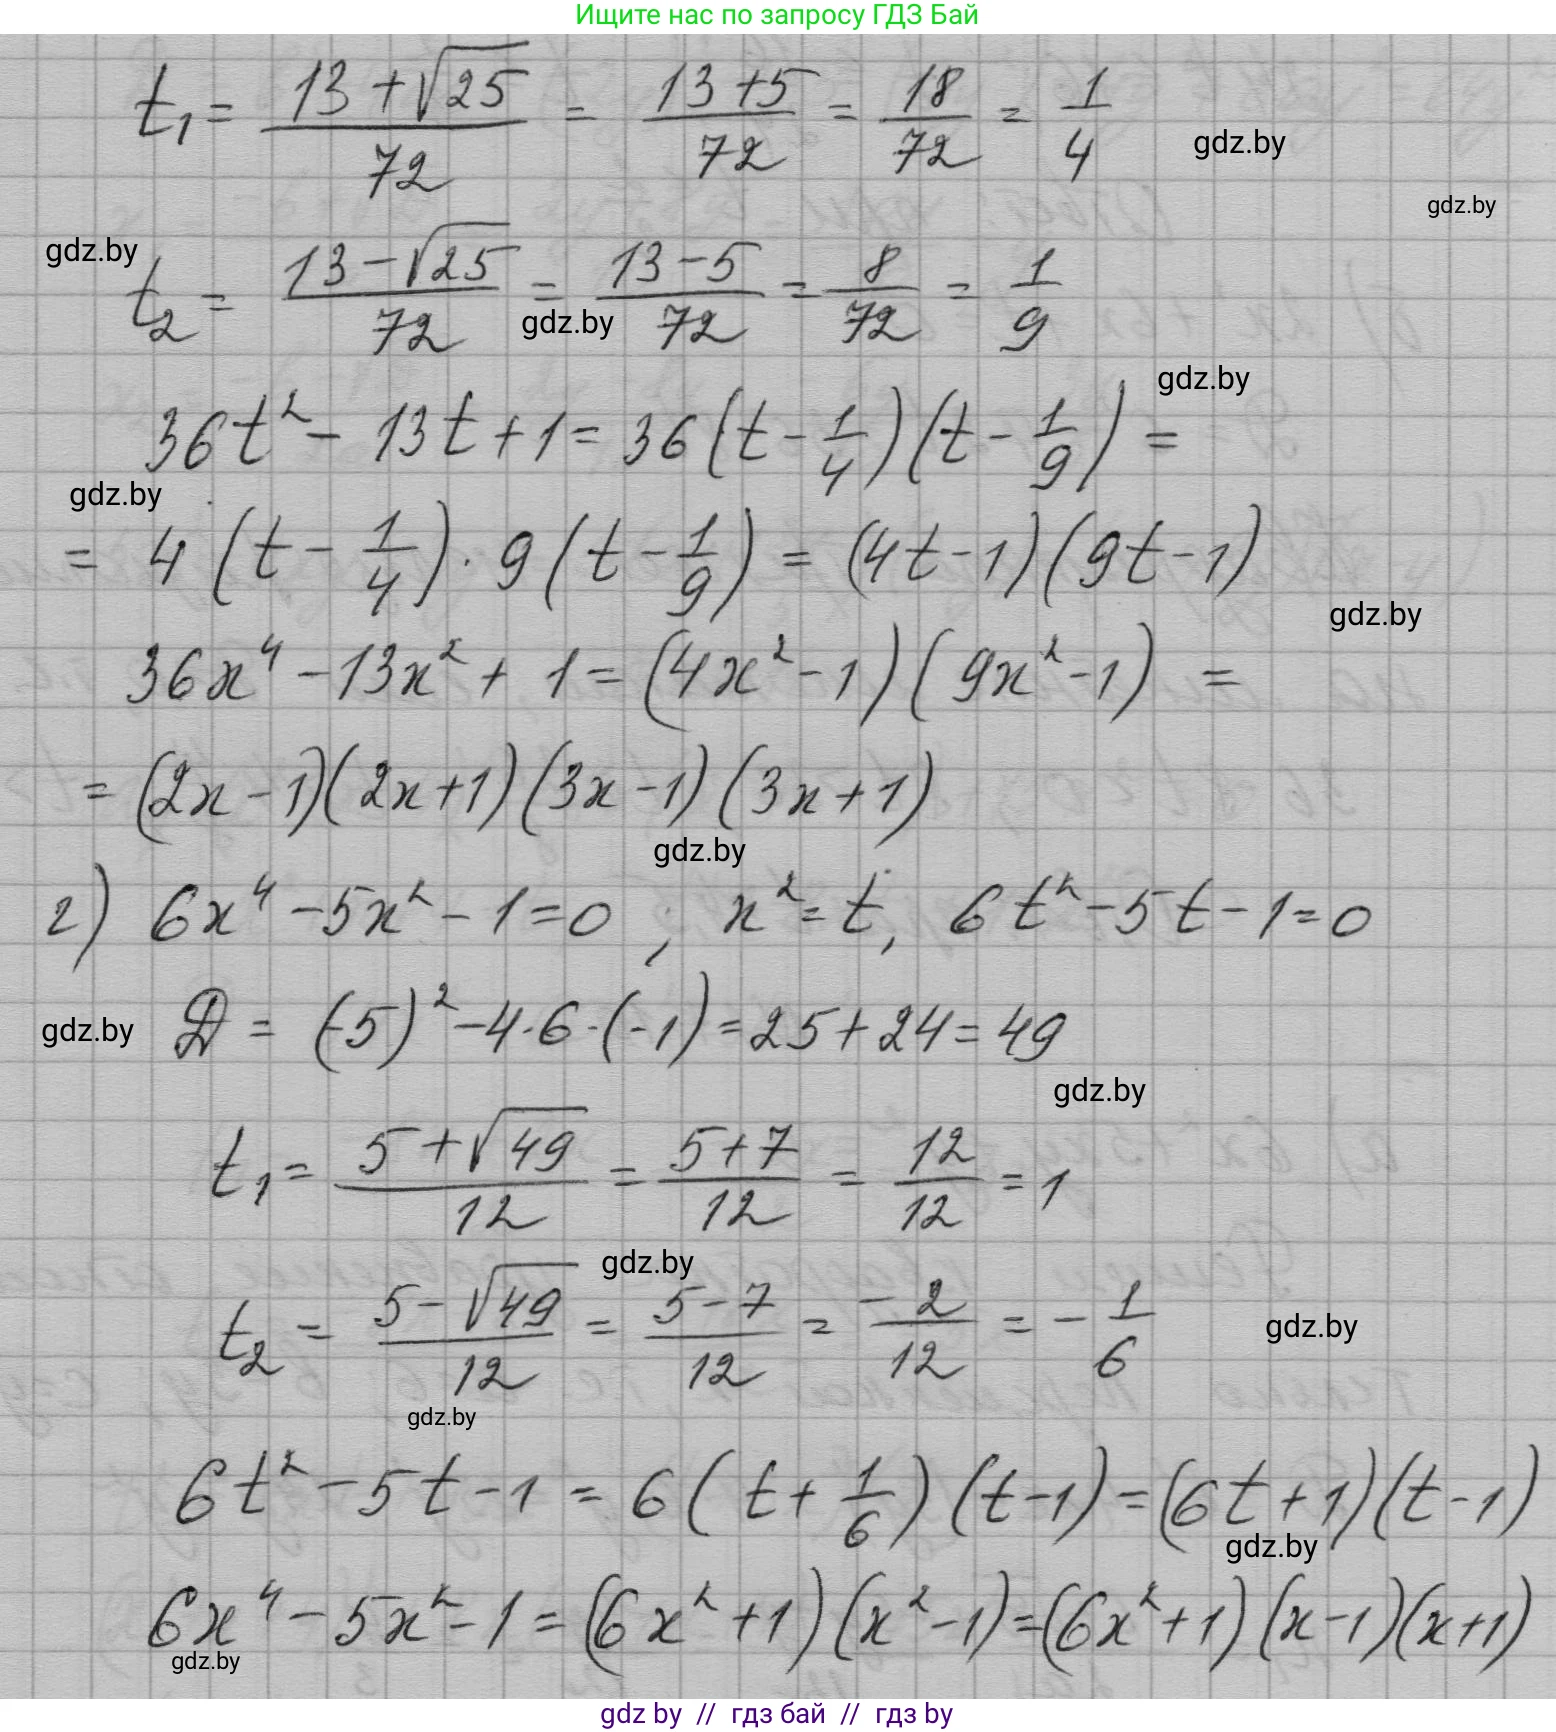 Ищите нас по запросу ГДЗ Бай
t₁ = (13 + √25)/72 = (13 + 5)/72 = 18/72 = 1/4
gdz.by
gdz.by
gdz.by
t₂ = (13 − √25)/72 = (13 − 5)/72 = 8/72 = 1/9
gdz.by
gdz.by
36t² − 13t + 1 = 36(t − 1/4)(t − 1/9) =
gdz.by
= 4(t − 1/4) · 9(t − 1/9) = (4t − 1)(9t − 1)
gdz.by
36x⁴ − 13x² + 1 = (4x² − 1)(9x² − 1) =
= (2x − 1)(2x + 1)(3x − 1)(3x + 1)
gdz.by
г) 6x⁴ − 5x² − 1 = 0 ; x² = t, 6t² − 5t − 1 = 0
gdz.by
D = (−5)² − 4 · 6 · (−1) = 25 + 24 = 49
gdz.by
t₁ = (5 + √49)/12 = (5 + 7)/12 = 12/12 = 1
gdz.by
t₂ = (5 − √49)/12 = (5 − 7)/12 = −2/12 = −1/6
gdz.by
gdz.by
6t² − 5t − 1 = 6(t + 1/6)(t − 1) = (6t + 1)(t − 1)
gdz.by
6x⁴ − 5x² − 1 = (6x² + 1)(x² − 1) = (6x² + 1)(x − 1)(x + 1)
gdz.by
gdz by // гдз бай // гдз by